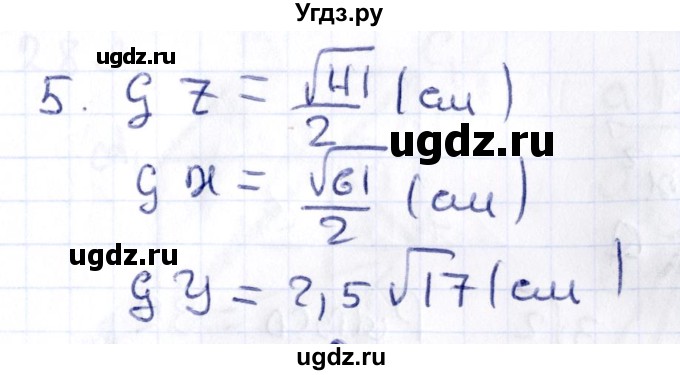 Угдз.ру
5. GZ = √41/2 (см)
ugdz.ru
GX = √61/2 (см)
ugdz.ru
GY = 2,5√17 (см)
ugdz.ru